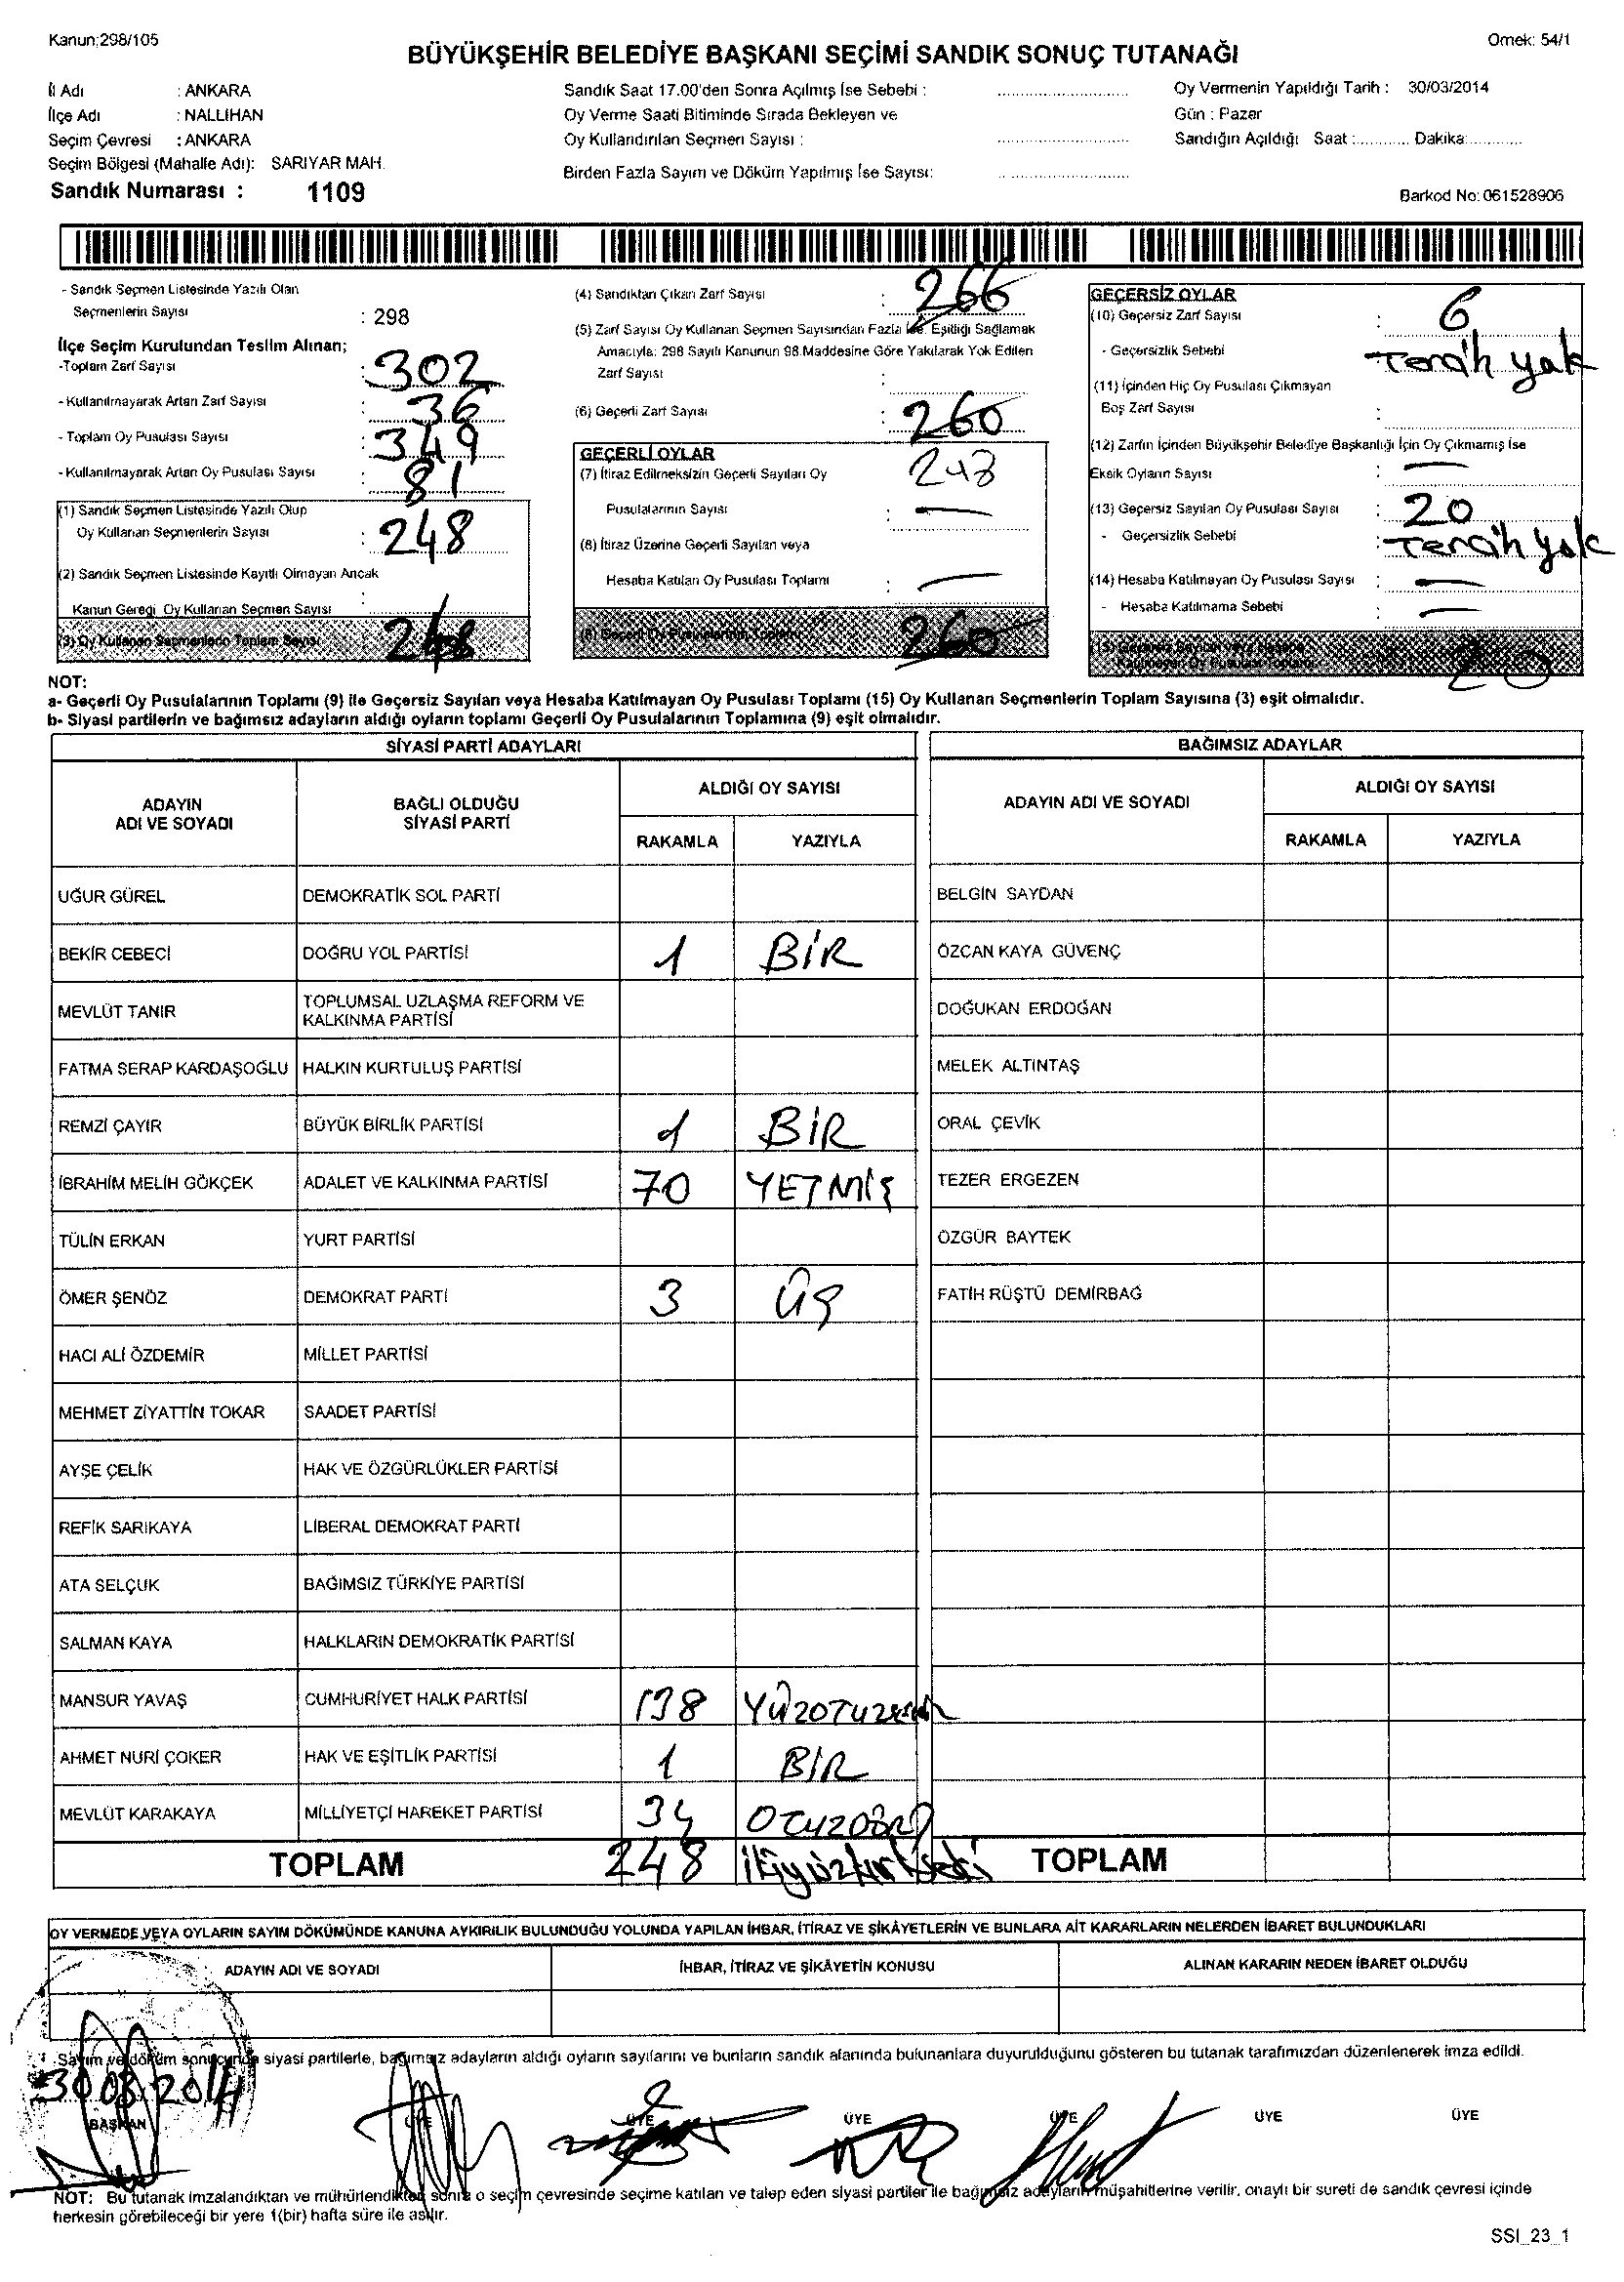 Kanun:298/105
Örnek: 54/1
BÜYÜKŞEHİR BELEDİYE BAŞKANI SEÇİMİ SANDIK SONUÇ TUTANAĞI
İl Adı : ANKARA
İlçe Adı : NALLIHAN
Seçim Çevresi : ANKARA
Seçim Bölgesi (Mahalle Adı): SARIYAR MAH.
Sandık Numarası : 1109
Sandık Saat 17.00'den Sonra Açılmış İse Sebebi :
Oy Verme Saati Bitiminde Sırada Bekleyen ve
Oy Kullandırılan Seçmen Sayısı :
Birden Fazla Sayım ve Döküm Yapılmış İse Sayısı:
Oy Vermenin Yapıldığı Tarih : 30/03/2014
Gün : Pazar
Sandığın Açıldığı Saat :............ Dakika:............
Barkod No: 061528906
- Sandık Seçmen Listesinde Yazılı Olan
Seçmenlerin Sayısı : 298
İlçe Seçim Kurulundan Teslim Alınan;
-Toplam Zarf Sayısı : 302
- Kullanılmayarak Artan Zarf Sayısı : 36
- Toplam Oy Pusulası Sayısı : 349
- Kullanılmayarak Artan Oy Pusulası Sayısı : 81
(1) Sandık Seçmen Listesinde Yazılı Olup
Oy Kullanan Seçmenlerin Sayısı : 248
(2) Sandık Seçmen Listesinde Kayıtlı Olmayan Ancak
Kanun Gereği Oy Kullanan Seçmen Sayısı :
(3) Oy Kullanan Seçmenlerin Toplam Sayısı: 248
(4) Sandıktan Çıkan Zarf Sayısı : 266
(5) Zarf Sayısı Oy Kullanan Seçmen Sayısından Fazla İse: Eşitliği Sağlamak
Amacıyla: 298 Sayılı Kanunun 98.Maddesine Göre Yakılarak Yok Edilen
Zarf Sayısı :
(6) Geçerli Zarf Sayısı : 260
GEÇERLİ OYLAR
(7) İtiraz Edilmeksizin Geçerli Sayılan Oy 248
Pusulalarının Sayısı : —
(8) İtiraz Üzerine Geçerli Sayılan veya
Hesaba Katılan Oy Pusulası Toplamı : —
(9) Geçerli Oy Pusulalarının Toplamı 260
GEÇERSİZ OYLAR
(10) Geçersiz Zarf Sayısı : 6
- Geçersizlik Sebebi Tercih yok
(11) İçinden Hiç Oy Pusulası Çıkmayan
Boş Zarf Sayısı :
(12) Zarfın İçinden Büyükşehir Belediye Başkanlığı İçin Oy Çıkmamış İse
Eksik Oyların Sayısı : —
(13) Geçersiz Sayılan Oy Pusulası Sayısı : 20
- Geçersizlik Sebebi : Tercih yok
(14) Hesaba Katılmayan Oy Pusulası Sayısı : —
- Hesaba Katılmama Sebebi : —
(15) Geçersiz Sayılan veya Hesaba
Katılmayan Oy Pusulası Toplamı 20
NOT:
a- Geçerli Oy Pusulalarının Toplamı (9) ile Geçersiz Sayılan veya Hesaba Katılmayan Oy Pusulası Toplamı (15) Oy Kullanan Seçmenlerin Toplam Sayısına (3) eşit olmalıdır.
b- Siyasi partilerin ve bağımsız adayların aldığı oyların toplamı Geçerli Oy Pusulalarının Toplamına (9) eşit olmalıdır.
SİYASİ PARTİ ADAYLARI
ADAYIN ADI VE SOYADI
BAĞLI OLDUĞU SİYASİ PARTİ
ALDIĞI OY SAYISI
RAKAMLA YAZIYLA
UĞUR GÜREL DEMOKRATİK SOL PARTİ
BEKİR CEBECİ DOĞRU YOL PARTİSİ 1 BİR
MEVLÜT TANIR TOPLUMSAL UZLAŞMA REFORM VE
KALKINMA PARTİSİ
FATMA SERAP KARDAŞOĞLU HALKIN KURTULUŞ PARTİSİ
REMZİ ÇAYIR BÜYÜK BİRLİK PARTİSİ 1 BİR
İBRAHİM MELİH GÖKÇEK ADALET VE KALKINMA PARTİSİ 70 YETMİŞ
TÜLİN ERKAN YURT PARTİSİ
ÖMER ŞENÖZ DEMOKRAT PARTİ 3 ÜÇ
HACI ALİ ÖZDEMİR MİLLET PARTİSİ
MEHMET ZİYATTİN TOKAR SAADET PARTİSİ
AYŞE ÇELİK HAK VE ÖZGÜRLÜKLER PARTİSİ
REFİK SARIKAYA LİBERAL DEMOKRAT PARTİ
ATA SELÇUK BAĞIMSIZ TÜRKİYE PARTİSİ
SALMAN KAYA HALKLARIN DEMOKRATİK PARTİSİ
MANSUR YAVAŞ CUMHURİYET HALK PARTİSİ 138
AHMET NURİ ÇOKER HAK VE EŞİTLİK PARTİSİ 1 BİR
MEVLÜT KARAKAYA MİLLİYETÇİ HAREKET PARTİSİ 34 OTUZDÖRT
TOPLAM 248
BAĞIMSIZ ADAYLAR
ADAYIN ADI VE SOYADI
ALDIĞI OY SAYISI
RAKAMLA YAZIYLA
BELGİN SAYDAN
ÖZCAN KAYA GÜVENÇ
DOĞUKAN ERDOĞAN
MELEK ALTINTAŞ
ORAL ÇEVİK
TEZER ERGEZEN
ÖZGÜR BAYTEK
FATİH RÜŞTÜ DEMİRBAĞ
TOPLAM
OY VERMEDE VEYA OYLARIN SAYIM DÖKÜMÜNDE KANUNA AYKIRILIK BULUNDUĞU YOLUNDA YAPILAN İHBAR, İTİRAZ VE ŞİKÂYETLERİN VE BUNLARA AİT KARARLARIN NELERDEN İBARET BULUNDUKLARI
ADAYIN ADI VE SOYADI İHBAR, İTİRAZ VE ŞİKÂYETİN KONUSU ALINAN KARARIN NEDEN İBARET OLDUĞU
Sayım ve döküm sonucunda siyasi partilerle, bağımsız adayların aldığı oyların sayılarını ve bunların sandık alanında bulunanlara duyurulduğunu gösteren bu tutanak tarafımızdan düzenlenerek imza edildi.
BAŞKAN ÜYE ÜYE ÜYE ÜYE ÜYE ÜYE
NOT: Bu tutanak imzalandıktan ve mühürlendikten sonra o seçim çevresinde seçime katılan ve talep eden siyasi partiler ile bağımsız adayların müşahitlerine verilir, onaylı bir sureti de sandık çevresi içinde
herkesin görebileceği bir yere 1(bir) hafta süre ile asılır.
SSI_23_1